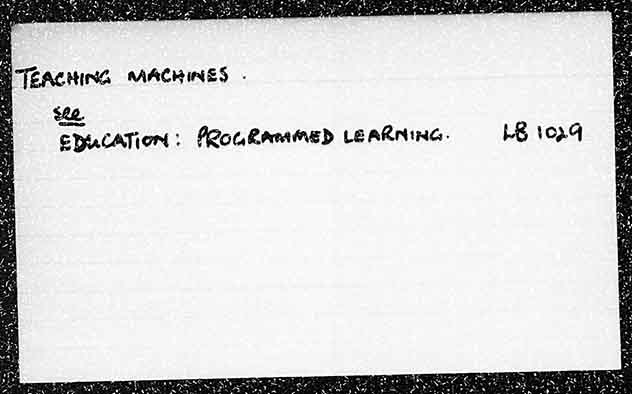 TEACHING MACHINES.
see
EDUCATION: PROGRAMMED LEARNING. LB 1029